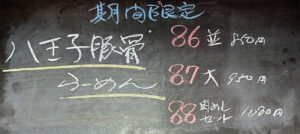 期間限定
八王子豚骨
らーめん
86 並 850円
87 大 950円
88 肉めしセット 1080円